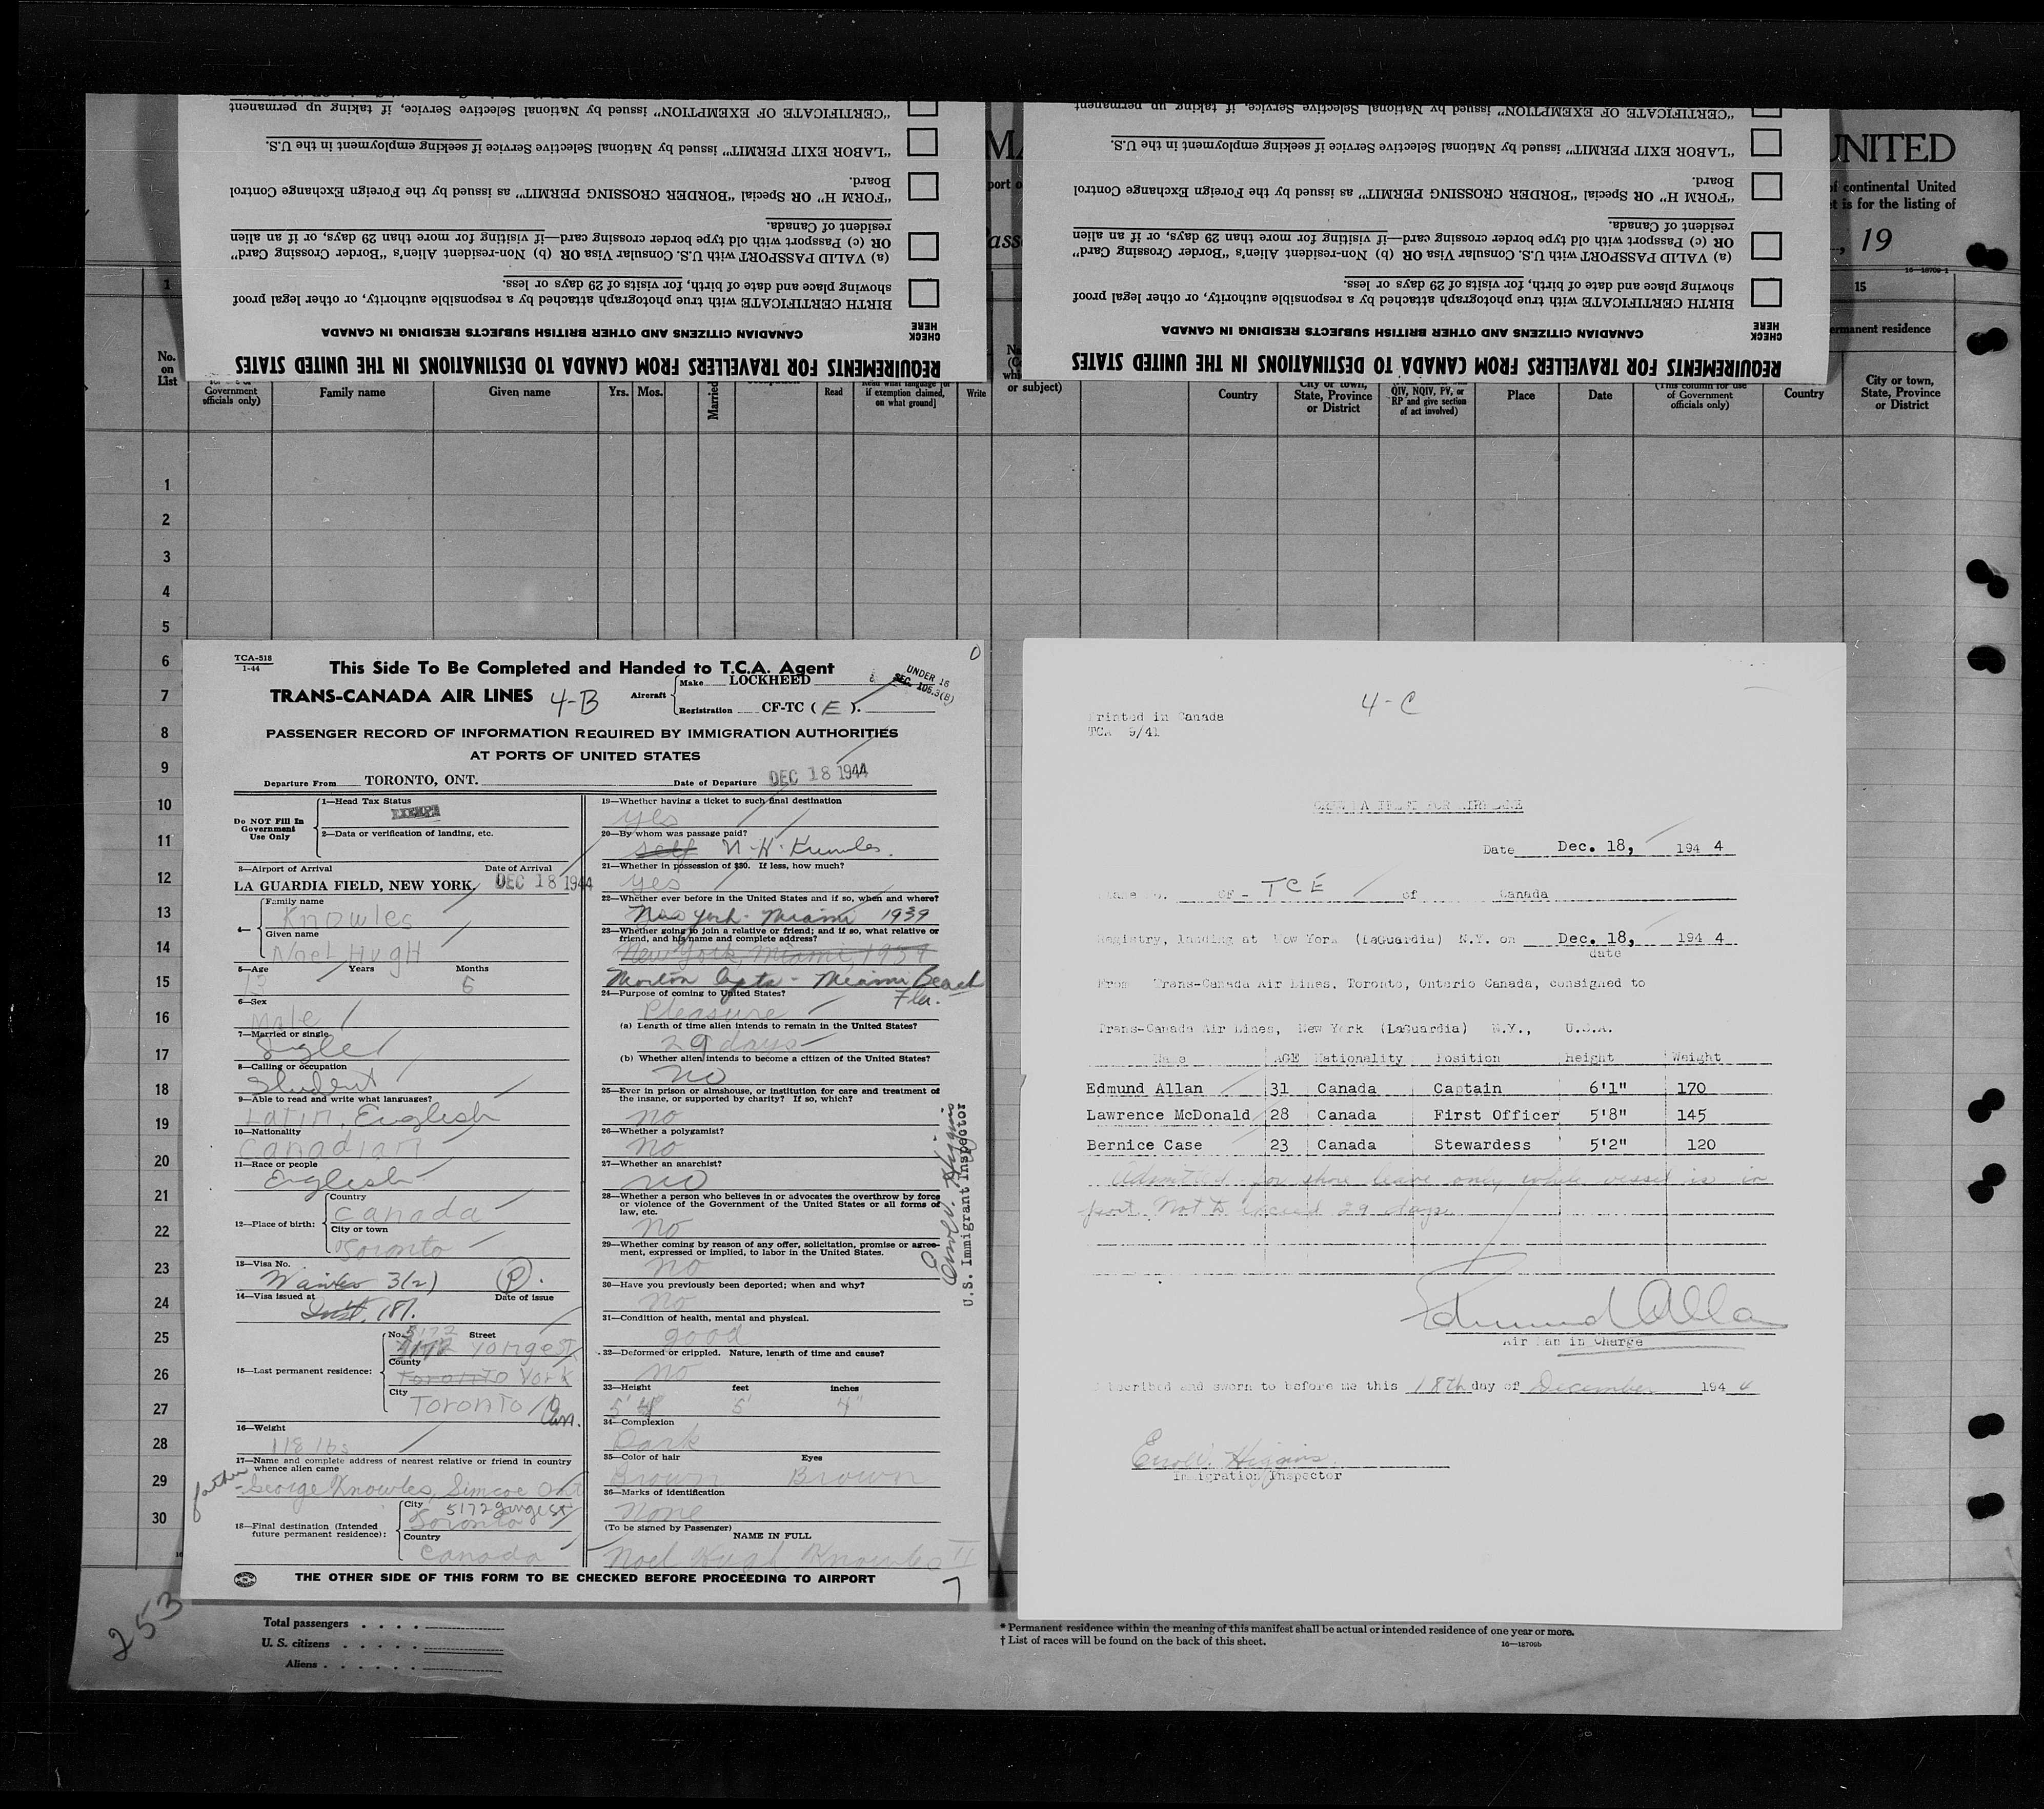 "CERTIFICATE OF EXEMPTION" issued by National Selective Service, if taking up permanent
"LABOR EXIT PERMIT" issued by National Selective Service if seeking employment in the U.S.
"FORM H" OR Special "BORDER CROSSING PERMIT" as issued by the Foreign Exchange Control
Board.
(a) VALID PASSPORT with U.S. Consular Visa OR (b) Non-resident Alien's "Border Crossing Card"
OR (c) Passport with old type border crossing card—if visiting for more than 29 days, or if an alien
resident of Canada.
BIRTH CERTIFICATE with true photograph attached by a responsible authority, or other legal proof
showing place and date of birth, for visits of 29 days or less.
CHECK HERE
CANADIAN CITIZENS AND OTHER BRITISH SUBJECTS RESIDING IN CANADA
REQUIREMENTS FOR TRAVELLERS FROM CANADA TO DESTINATIONS IN THE UNITED STATES
"CERTIFICATE OF EXEMPTION" issued by National Selective Service, if taking up permanent
"LABOR EXIT PERMIT" issued by National Selective Service if seeking employment in the U.S.
"FORM H" OR Special "BORDER CROSSING PERMIT" as issued by the Foreign Exchange Control
Board.
(a) VALID PASSPORT with U.S. Consular Visa OR (b) Non-resident Alien's "Border Crossing Card"
OR (c) Passport with old type border crossing card—if visiting for more than 29 days, or if an alien
resident of Canada.
BIRTH CERTIFICATE with true photograph attached by a responsible authority, or other legal proof
showing place and date of birth, for visits of 29 days or less.
CHECK HERE
CANADIAN CITIZENS AND OTHER BRITISH SUBJECTS RESIDING IN CANADA
REQUIREMENTS FOR TRAVELLERS FROM CANADA TO DESTINATIONS IN THE UNITED STATES
UNITED
of continental United
is for the listing of
, 19
15
permanent residence
No. on List
Government officials only)
Family name
Given name
Yrs.
Mos.
Married
Read
Read what language [or if exemption claimed, on what ground]
Write
or subject)
Country
City or town, State, Province or District
QIV, NQIV, PV, or RP and give section of act involved)
Place
Date
(This column for use of Government officials only)
Country
City or town, State, Province or District
1
2
3
4
5
6
7
8
9
10
11
12
13
14
15
16
17
18
19
20
21
22
23
24
25
26
27
28
29
30
TCA-518
1-44
This Side To Be Completed and Handed to T.C.A. Agent
TRANS-CANADA AIR LINES 4-B
Aircraft
Make LOCKHEED
Registration CF-TC ( E ).
UNDER 16
SEC. 105.3(B)
PASSENGER RECORD OF INFORMATION REQUIRED BY IMMIGRATION AUTHORITIES
AT PORTS OF UNITED STATES
Departure From TORONTO, ONT. Date of Departure DEC 18 1944
Do NOT Fill In Government Use Only
1—Head Tax Status
EXEMPT
2—Data or verification of landing, etc.
3—Airport of Arrival Date of Arrival
LA GUARDIA FIELD, NEW YORK. DEC 18 1944
4—
Family name
Knowles
Given name
Noel Hugh
5—Age Years Months
13 6
6—Sex
Male
7—Married or single
Single
8—Calling or occupation
Student
9—Able to read and write what languages?
Latin, English
10—Nationality
Canadian
11—Race or people
English
12—Place of birth:
Country
Canada
City or town
Toronto
13—Visa No.
3(2) (P).
14—Visa issued at Date of issue
181.
15—Last permanent residence:
No. Street
5172 Yonge St
County
Toronto York
City
Toronto Can.
16—Weight
118 lbs
17—Name and complete address of nearest relative or friend in country
whence alien came
father - George Knowles, Simcoe Ont
18—Final destination (Intended
future permanent residence):
City
5172 Yonge St
Toronto
Country
Canada
19—Whether having a ticket to such final destination
yes
20—By whom was passage paid?
self N. H. Knowles.
21—Whether in possession of $50. If less, how much?
yes
22—Whether ever before in the United States and if so, when and where?
New York - Miami 1939
23—Whether going to join a relative or friend; and if so, what relative or
friend, and his name and complete address?
New York, Miami, 1939
Morton Apts - Miami Beach
Fla.
24—Purpose of coming to United States?
Pleasure
(a) Length of time alien intends to remain in the United States?
29 days
(b) Whether alien intends to become a citizen of the United States?
no
25—Ever in prison or almshouse, or institution for care and treatment of
the insane, or supported by charity? If so, which?
no
26—Whether a polygamist?
No
27—Whether an anarchist?
NO
28—Whether a person who believes in or advocates the overthrow by force
or violence of the Government of the United States or all forms of
law, etc.
No
29—Whether coming by reason of any offer, solicitation, promise or agree-
ment, expressed or implied, to labor in the United States.
No
30—Have you previously been deported; when and why?
No
31—Condition of health, mental and physical.
good
32—Deformed or crippled. Nature, length of time and cause?
No
33—Height feet inches
5' 4"
34—Complexion
Dark
35—Color of hair Eyes
Brown Brown
36—Marks of identification
None
(To be signed by Passenger)
NAME IN FULL
Noel Hugh Knowles II
THE OTHER SIDE OF THIS FORM TO BE CHECKED BEFORE PROCEEDING TO AIRPORT
7
Errol V. Higgins
U.S. Immigrant Inspector
4-C
Printed in Canada
TCA 9/41
Date Dec. 18, 194 4
CF - TCE of Canada
Registry, landing at New York (LaGuardia) N.Y. on Dec. 18, 194 4
date
From Trans-Canada Air Lines, Toronto, Ontario Canada, consigned to
Trans-Canada Air Lines, New York (LaGuardia) N.Y., U.S.A.
Name AGE Nationality Position Height Weight
Edmund Allan 31 Canada Captain 6'1" 170
Lawrence McDonald 28 Canada First Officer 5'8" 145
Bernice Case 23 Canada Stewardess 5'2" 120
Admitted for shore leave only while vessel is in
port. Not to exceed 29 days
Edmund Allan
Air Man in Charge
Subscribed and sworn to before me this 18th day of December 194 4
Errol V. Higgins
Immigration Inspector
253
Total passengers
U. S. citizens
Aliens
* Permanent residence within the meaning of this manifest shall be actual or intended residence of one year or more.
† List of races will be found on the back of this sheet.
16—18709b